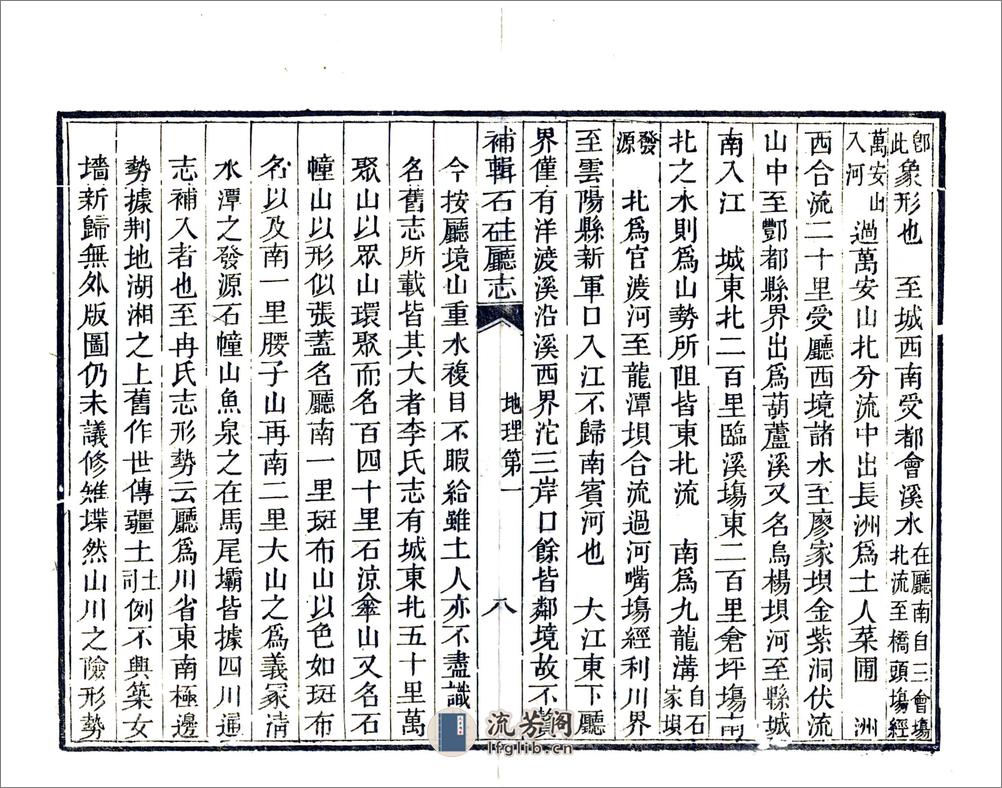 卽此象形也　至城西南受都會溪水在廳南自三會塲北流至橋頭塲經
萬安山入河過萬安山北分流中出長洲爲土人菜圃　洲
西合流二十里受廳西境諸水至廖家垻金紫洞伏流
山中至酆都縣界出爲葫蘆溪又名烏楊垻河至縣城
南入江　城東北二百里臨溪塲東二百里倉坪塲南
北之水則爲山勢所阻皆東北流　南爲九龍溝自石家垻
發源　北爲官渡河至龍潭垻合流過河嘴塲經利川界
至雲陽縣新軍口入江不歸南賓河也　大江東下廳
界僅有洋渡溪沿溪西界沱三岸口餘皆鄰境故不
補輯石砫廳志　地理第一　八
今按廳境山重水複目不暇給雖土人亦不盡識
名舊志所載皆其大者李氏志有城東北五十里萬
聚山以眾山環聚而名百四十里石涼傘山又名石
幢山以形似張蓋名廳南一里斑布山以色如斑布
名以及南一里腰子山再南二里大山之爲義冢淸
水潭之發源石幢山魚泉之在馬尾壩皆據四川通
志補入者也至冉氏志形勢云廳爲川省東南極邊
勢據荆地湖湘之上舊作世傳疆土土司例不興築女
墻新歸無外版圖仍未議修雉堞然山川之險形勢
流芳阁
lfglib.cn